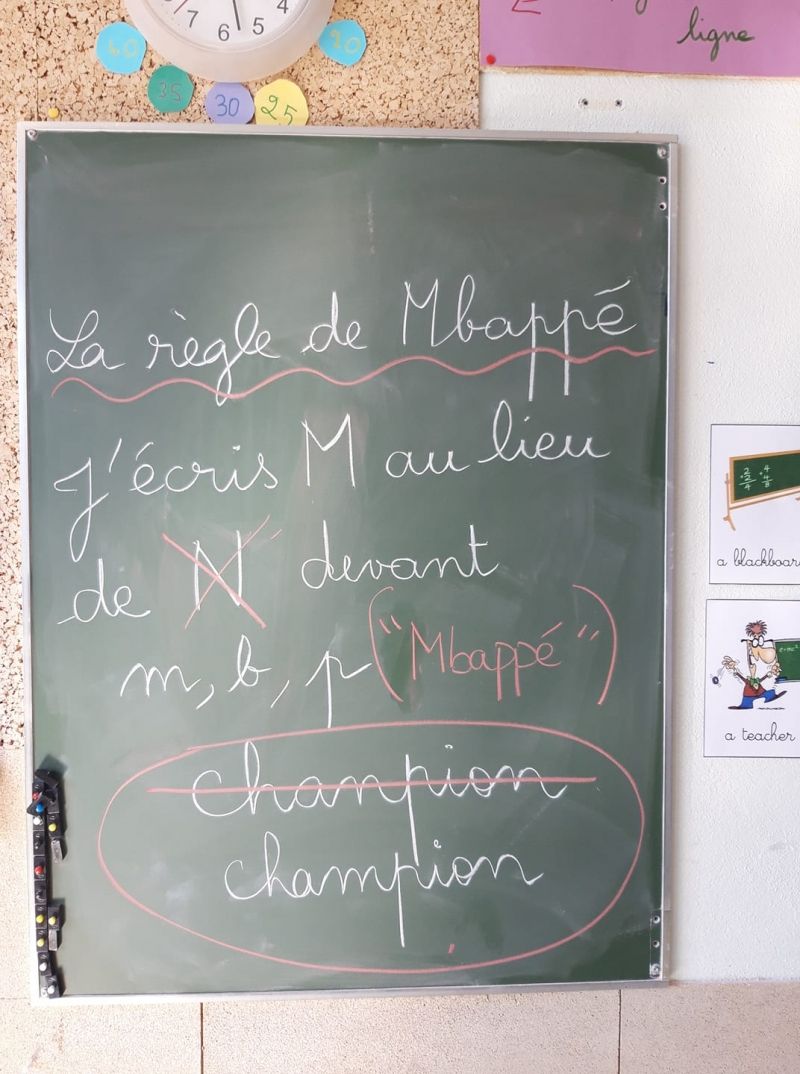 7 6 5 4
40 35 30 25 20
ligne
La règle de Mbappé
J'écris M au lieu
de N devant
m, b, p ("Mbappé")
chanpion
champion
a blackboar
a teacher